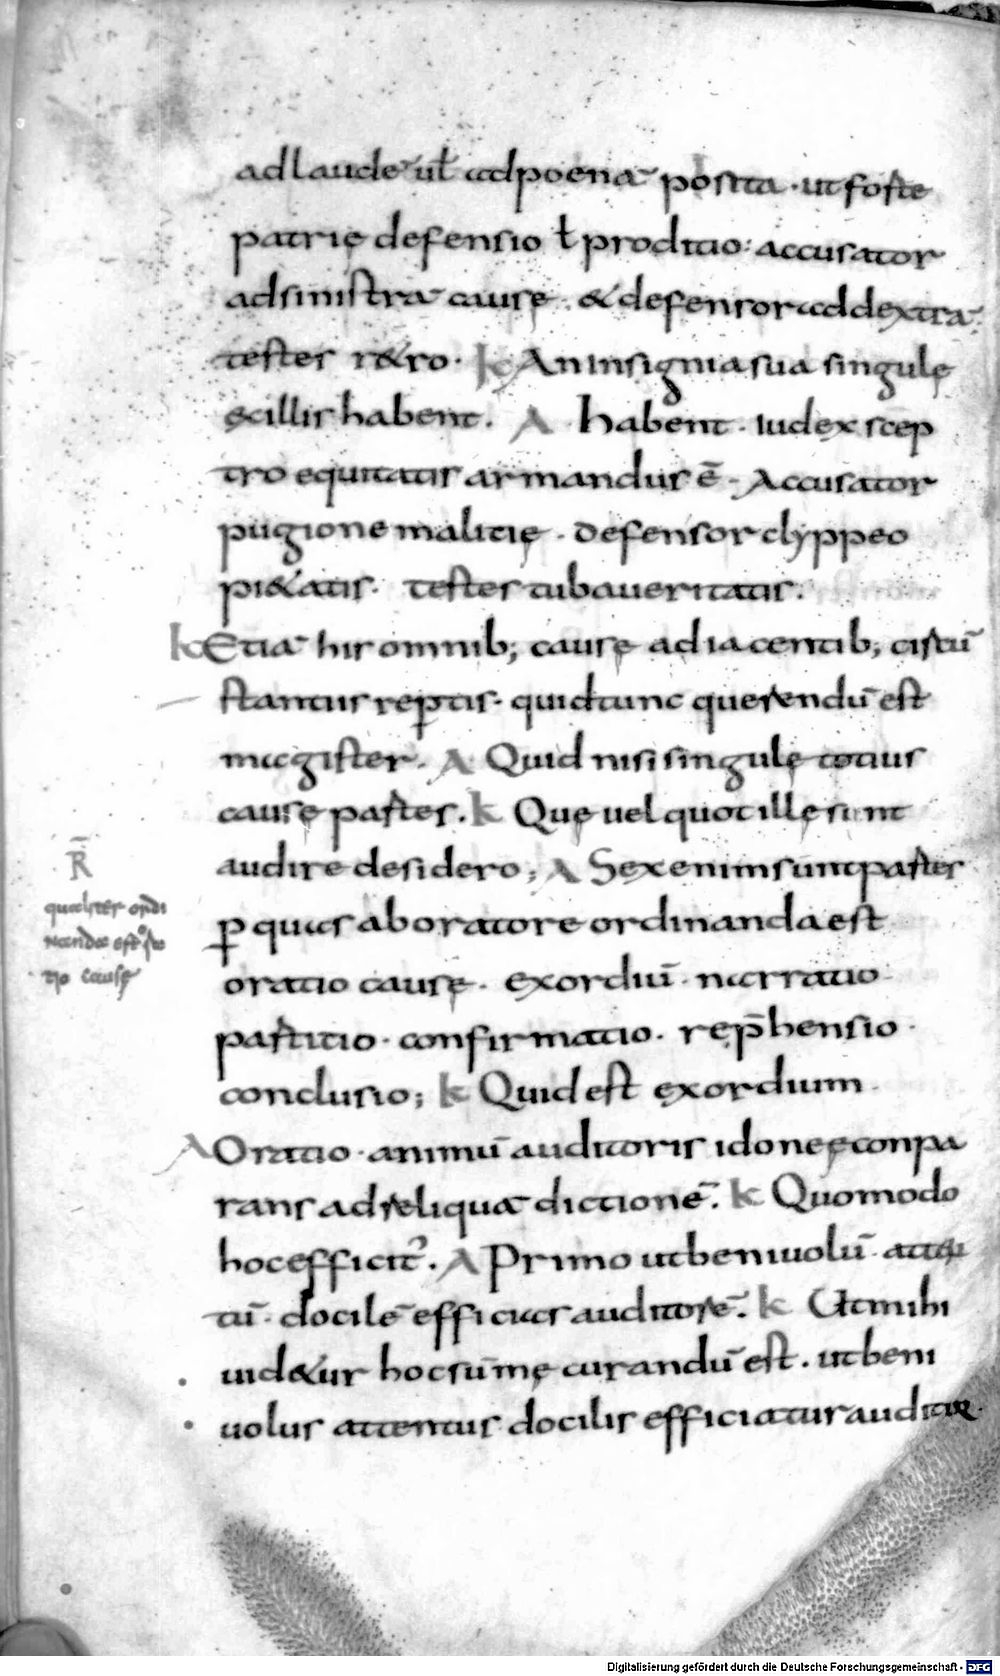 ad laudē uł ad poenā posita · ut forte
patrię defensio ł proditio: accusator
ad sinistrā causę · & defensor ad dextrā
testes r&ro · K An insignia sua singulę
ex illis habent. A habent · Iudex scep
tro equitatis armandus ē · Accusator
pugione malitię · defensor clyppeo
pi&atis · testes tuba ueritatis.
K Etiā his omnib; causę adiacentib; cistū
stantiis rep̄tis · quid tunc querendū est
magister. A Quid nisi singulę totius
causę partes. K Quę uel quot illę sunt
audire desidero; A Sex enim sunt partes
R̄
qualiter ordi
nanda est ora
tio causę
p̱ quas ab oratore ordinanda est
oratio causę · exordiū · narratio
partitio · confirmatio · rep̄hensio ·
conclusio; K Quid est exordium
A Oratio · animū auditoris idoneę conpa
rans ad reliquā dictionē. K Quomodo
hoc efficit᷑. A Primo ut beniuolū atten
tū · docilē efficias auditorē. K Ut mihi
uid&ur hoc sūmę curandū est. ut beni
uolus attentus docilis efficiatur auditor
Digitalisierung gefördert durch die Deutsche Forschungsgemeinschaft - DFG